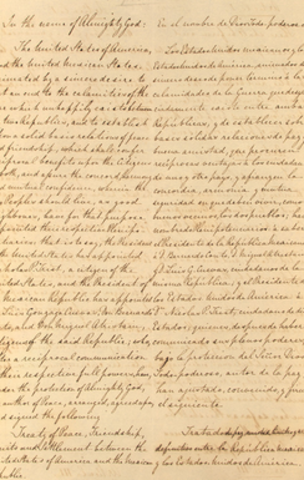 In the name of Almighty God:
The United States of America,
and the United Mexican States
animated by a sincere desire to
put an end to the calamities of the
war which unhappily exists between
two Republics, and to establish
upon a solid basis relations of peace
and friendship, which shall confer
reciprocal benefits upon the citizens
both, and assure the concord, harmony
and mutual confidence, wherein the
Peoples should live, as good
neighbours, have for that purpose
appointed their respective Plenipo-
tentiaries, that is to say, the President
the United States has appointed
Nicholas P. Trist, a citizen of the
United States, and the President of
Mexican Republic has appointed
Luis Gonzaga Cuevas, Bernardo
and Miguel Atristain,
citizens of the said Republic; who,
after a reciprocal communication
their respective full powers, have,
under the protection of Almighty God,
author of Peace, arranged, agreed upon,
and signed the following
Treaty of Peace, Friendship,
Limits and Settlement between the
United States of America and the Mexican
Republic.
En el nombre de Dios Todopoderoso
Los Estados Unidos mexicanos y los
Estados Unidos de America, animados de
sincero deseo de poner termino á las
calamidades de la Guerra que desgra-
ciadamente existe entre ambas
Republicas, y de establecer sobre
bases solidas relaciones de paz y
buena amistad, que procuren
reciprocas ventajas á los ciudadanos
de uno y otro pays, y afiancen la
concordia, armonia y mutua
seguridad en que deben vivir, como
buenos vecinos, los dos pueblos; han
nombrado Plenipotenciarios á saber
el Presidente de la Republica mexicana
á D. Bernardo Couto, D. Miguel Atristain
y D. Luis G. Cuevas, ciudadanos de la
misma Republica, y el Presidente de
los Estados Unidos de America á
D. Nicolas P. Trist, ciudadano de dichos
Estados; quienes, despues de haberse
comunicado sus plenos poderes,
bajo la proteccion del Señor Dios
Todopoderoso, autor de la paz
han ajustado, convenido, y firmado
el siguiente
Tratado de paz, amistad, limites y arreglo
definitivo entre la Republica mexicana
y los Estados Unidos de America.